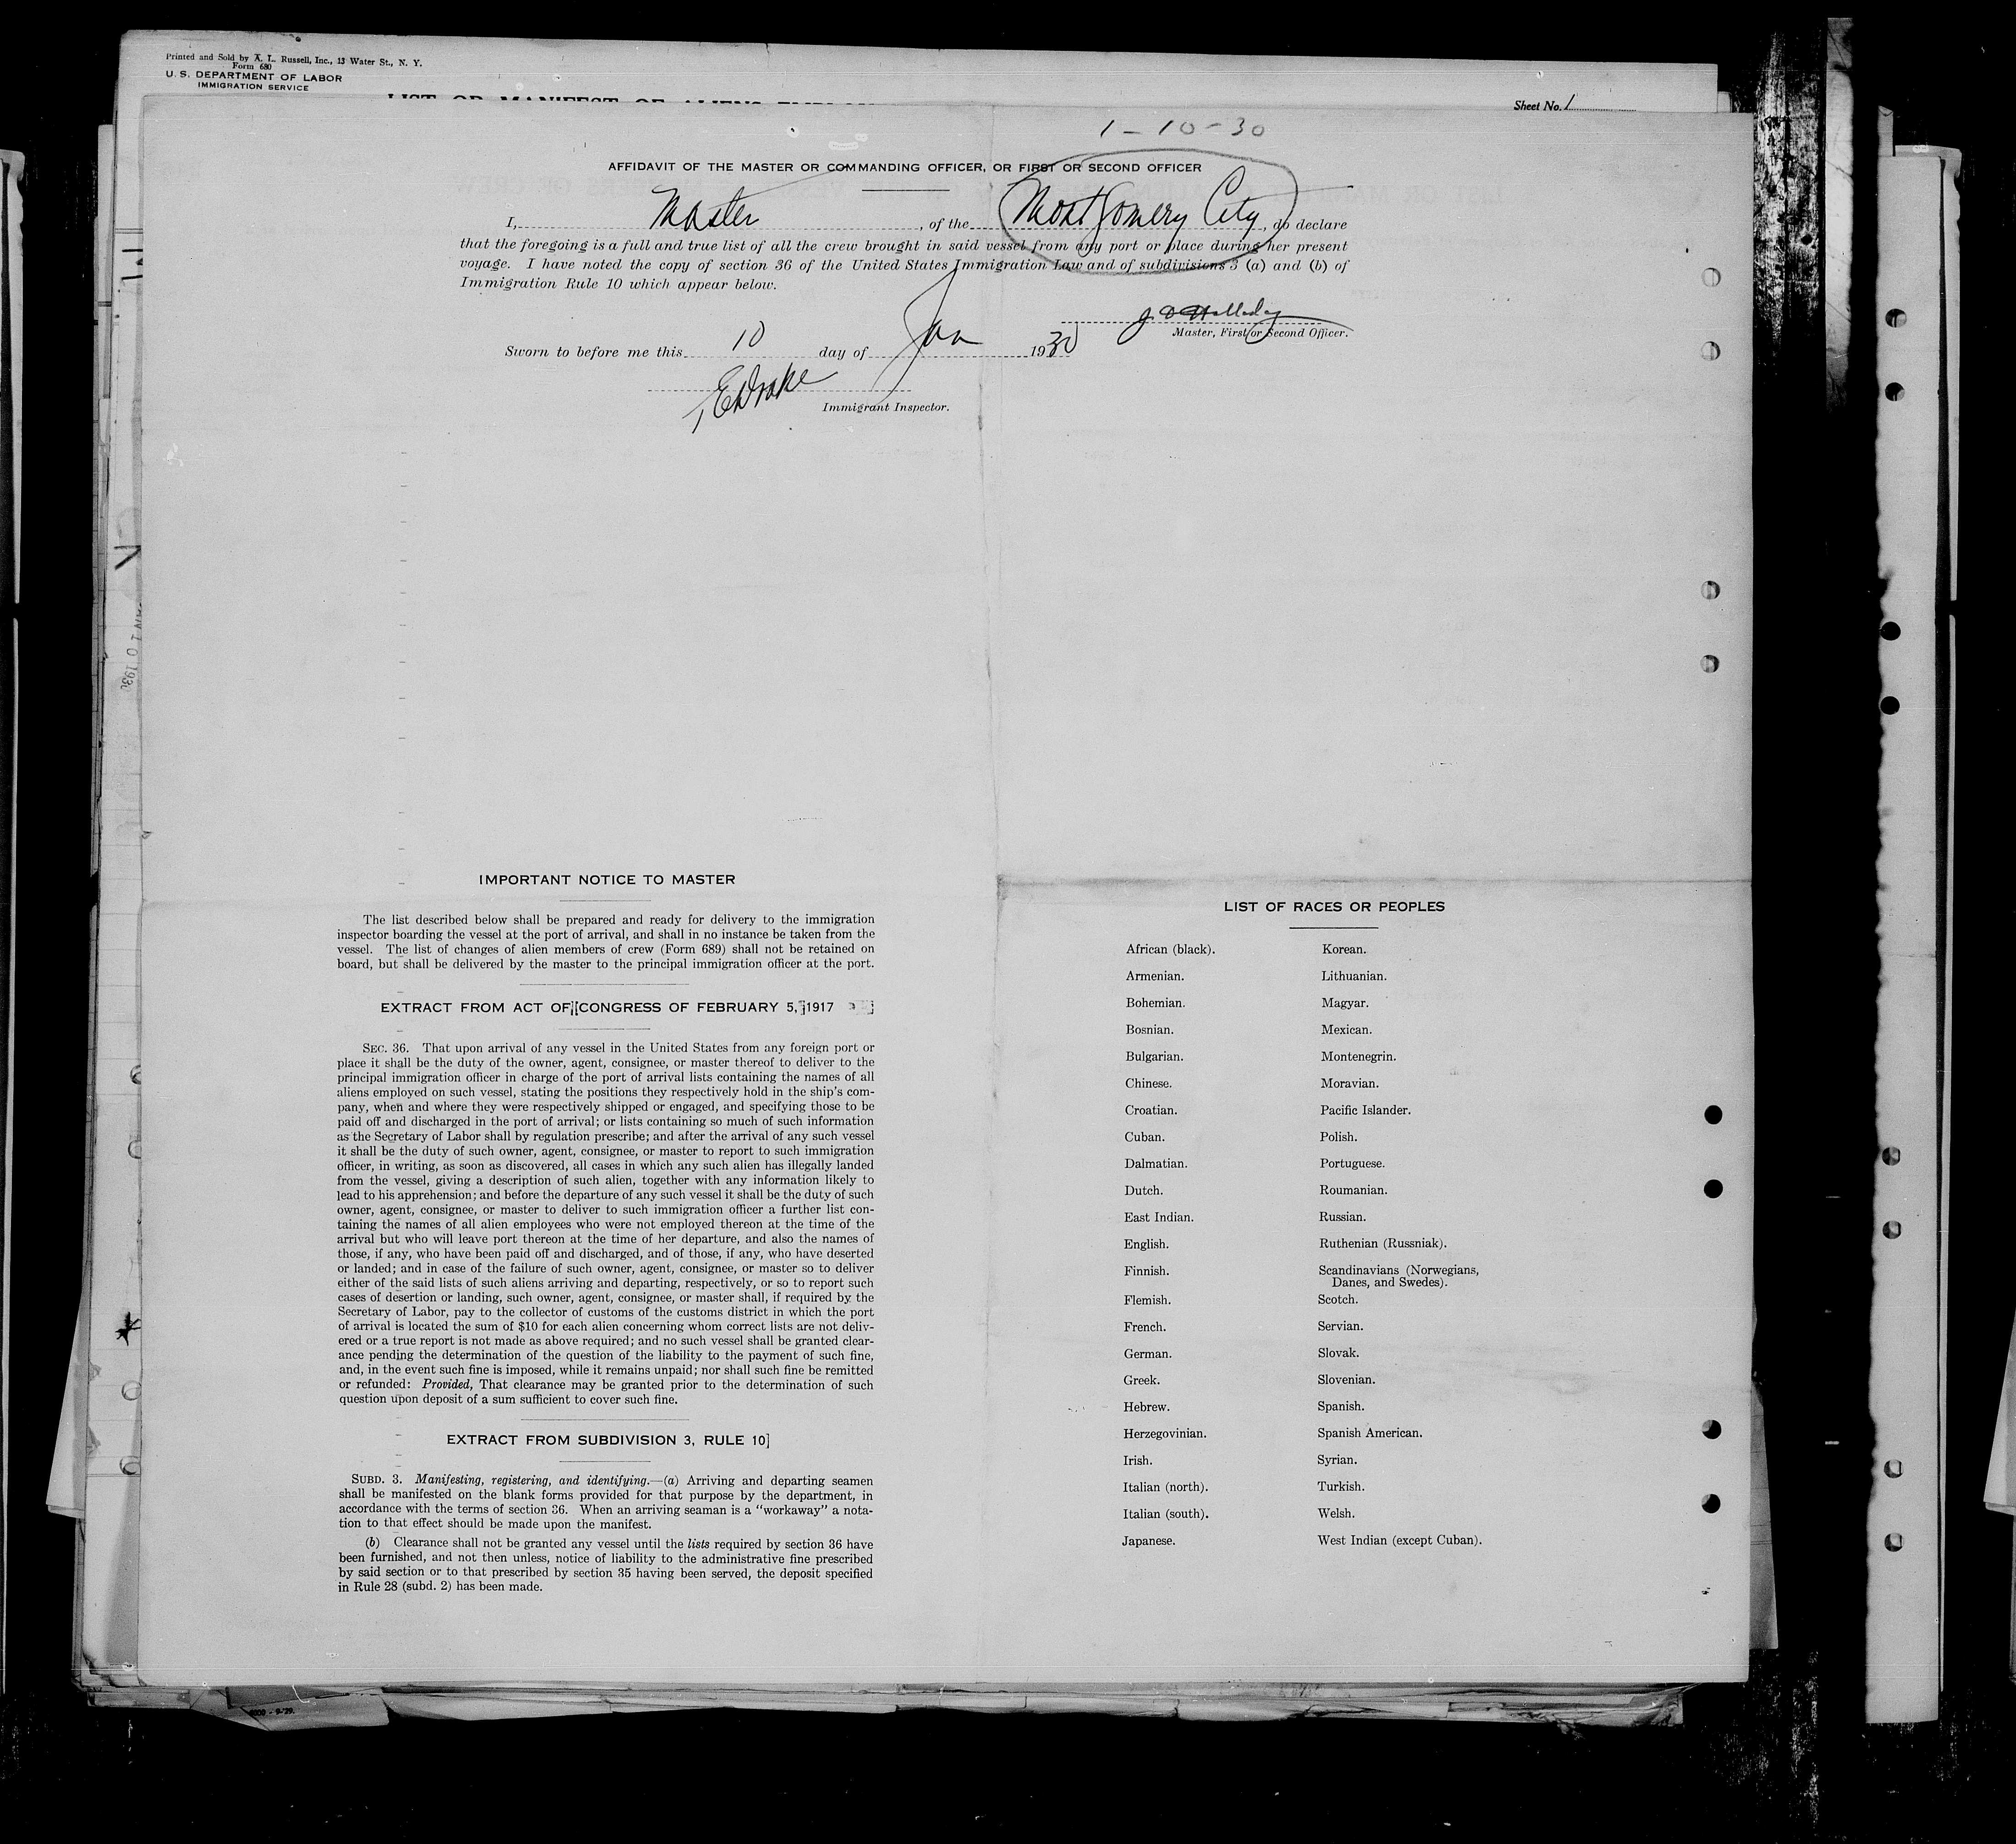 Printed and Sold by A. L. Russell, Inc., 13 Water St., N. Y.
Form 680
U. S. DEPARTMENT OF LABOR
IMMIGRATION SERVICE
Sheet No. 1
1-10-30
AFFIDAVIT OF THE MASTER OR COMMANDING OFFICER, OR FIRST OR SECOND OFFICER
I, Master, of the Montgomery City, do declare
that the foregoing is a full and true list of all the crew brought in said vessel from any port or place during her present
voyage. I have noted the copy of section 36 of the United States Immigration Law and of subdivisions 3 (a) and (b) of
Immigration Rule 10 which appear below.
Master, First or Second Officer.
Sworn to before me this 10 day of Jan 1930
Immigrant Inspector.
JAN 10 1930
IMPORTANT NOTICE TO MASTER
The list described below shall be prepared and ready for delivery to the immigration
inspector boarding the vessel at the port of arrival, and shall in no instance be taken from the
vessel. The list of changes of alien members of crew (Form 689) shall not be retained on
board, but shall be delivered by the master to the principal immigration officer at the port.
EXTRACT FROM ACT OF CONGRESS OF FEBRUARY 5, 1917
SEC. 36. That upon arrival of any vessel in the United States from any foreign port or
place it shall be the duty of the owner, agent, consignee, or master thereof to deliver to the
principal immigration officer in charge of the port of arrival lists containing the names of all
aliens employed on such vessel, stating the positions they respectively hold in the ship's com-
pany, when and where they were respectively shipped or engaged, and specifying those to be
paid off and discharged in the port of arrival; or lists containing so much of such information
as the Secretary of Labor shall by regulation prescribe; and after the arrival of any such vessel
it shall be the duty of such owner, agent, consignee, or master to report to such immigration
officer, in writing, as soon as discovered, all cases in which any such alien has illegally landed
from the vessel, giving a description of such alien, together with any information likely to
lead to his apprehension; and before the departure of any such vessel it shall be the duty of such
owner, agent, consignee, or master to deliver to such immigration officer a further list con-
taining the names of all alien employees who were not employed thereon at the time of the
arrival but who will leave port thereon at the time of her departure, and also the names of
those, if any, who have been paid off and discharged, and of those, if any, who have deserted
or landed; and in case of the failure of such owner, agent, consignee, or master so to deliver
either of the said lists of such aliens arriving and departing, respectively, or so to report such
cases of desertion or landing, such owner, agent, consignee, or master shall, if required by the
Secretary of Labor, pay to the collector of customs of the customs district in which the port
of arrival is located the sum of $10 for each alien concerning whom correct lists are not deliv-
ered or a true report is not made as above required; and no such vessel shall be granted clear-
ance pending the determination of the question of the liability to the payment of such fine,
and, in the event such fine is imposed, while it remains unpaid; nor shall such fine be remitted
or refunded: Provided, That clearance may be granted prior to the determination of such
question upon deposit of a sum sufficient to cover such fine.
EXTRACT FROM SUBDIVISION 3, RULE 10
SUBD. 3. Manifesting, registering, and identifying.—(a) Arriving and departing seamen
shall be manifested on the blank forms provided for that purpose by the department, in
accordance with the terms of section 36. When an arriving seaman is a "workaway" a nota-
tion to that effect should be made upon the manifest.
(b) Clearance shall not be granted any vessel until the lists required by section 36 have
been furnished, and not then unless, notice of liability to the administrative fine prescribed
by said section or to that prescribed by section 35 having been served, the deposit specified
in Rule 28 (subd. 2) has been made.
LIST OF RACES OR PEOPLES
African (black). Korean.
Armenian. Lithuanian.
Bohemian. Magyar.
Bosnian. Mexican.
Bulgarian. Montenegrin.
Chinese. Moravian.
Croatian. Pacific Islander.
Cuban. Polish.
Dalmatian. Portuguese.
Dutch. Roumanian.
East Indian. Russian.
English. Ruthenian (Russniak).
Finnish. Scandinavians (Norwegians,
Danes, and Swedes).
Flemish. Scotch.
French. Servian.
German. Slovak.
Greek. Slovenian.
Hebrew. Spanish.
Herzegovinian. Spanish American.
Irish. Syrian.
Italian (north). Turkish.
Italian (south). Welsh.
Japanese. West Indian (except Cuban).